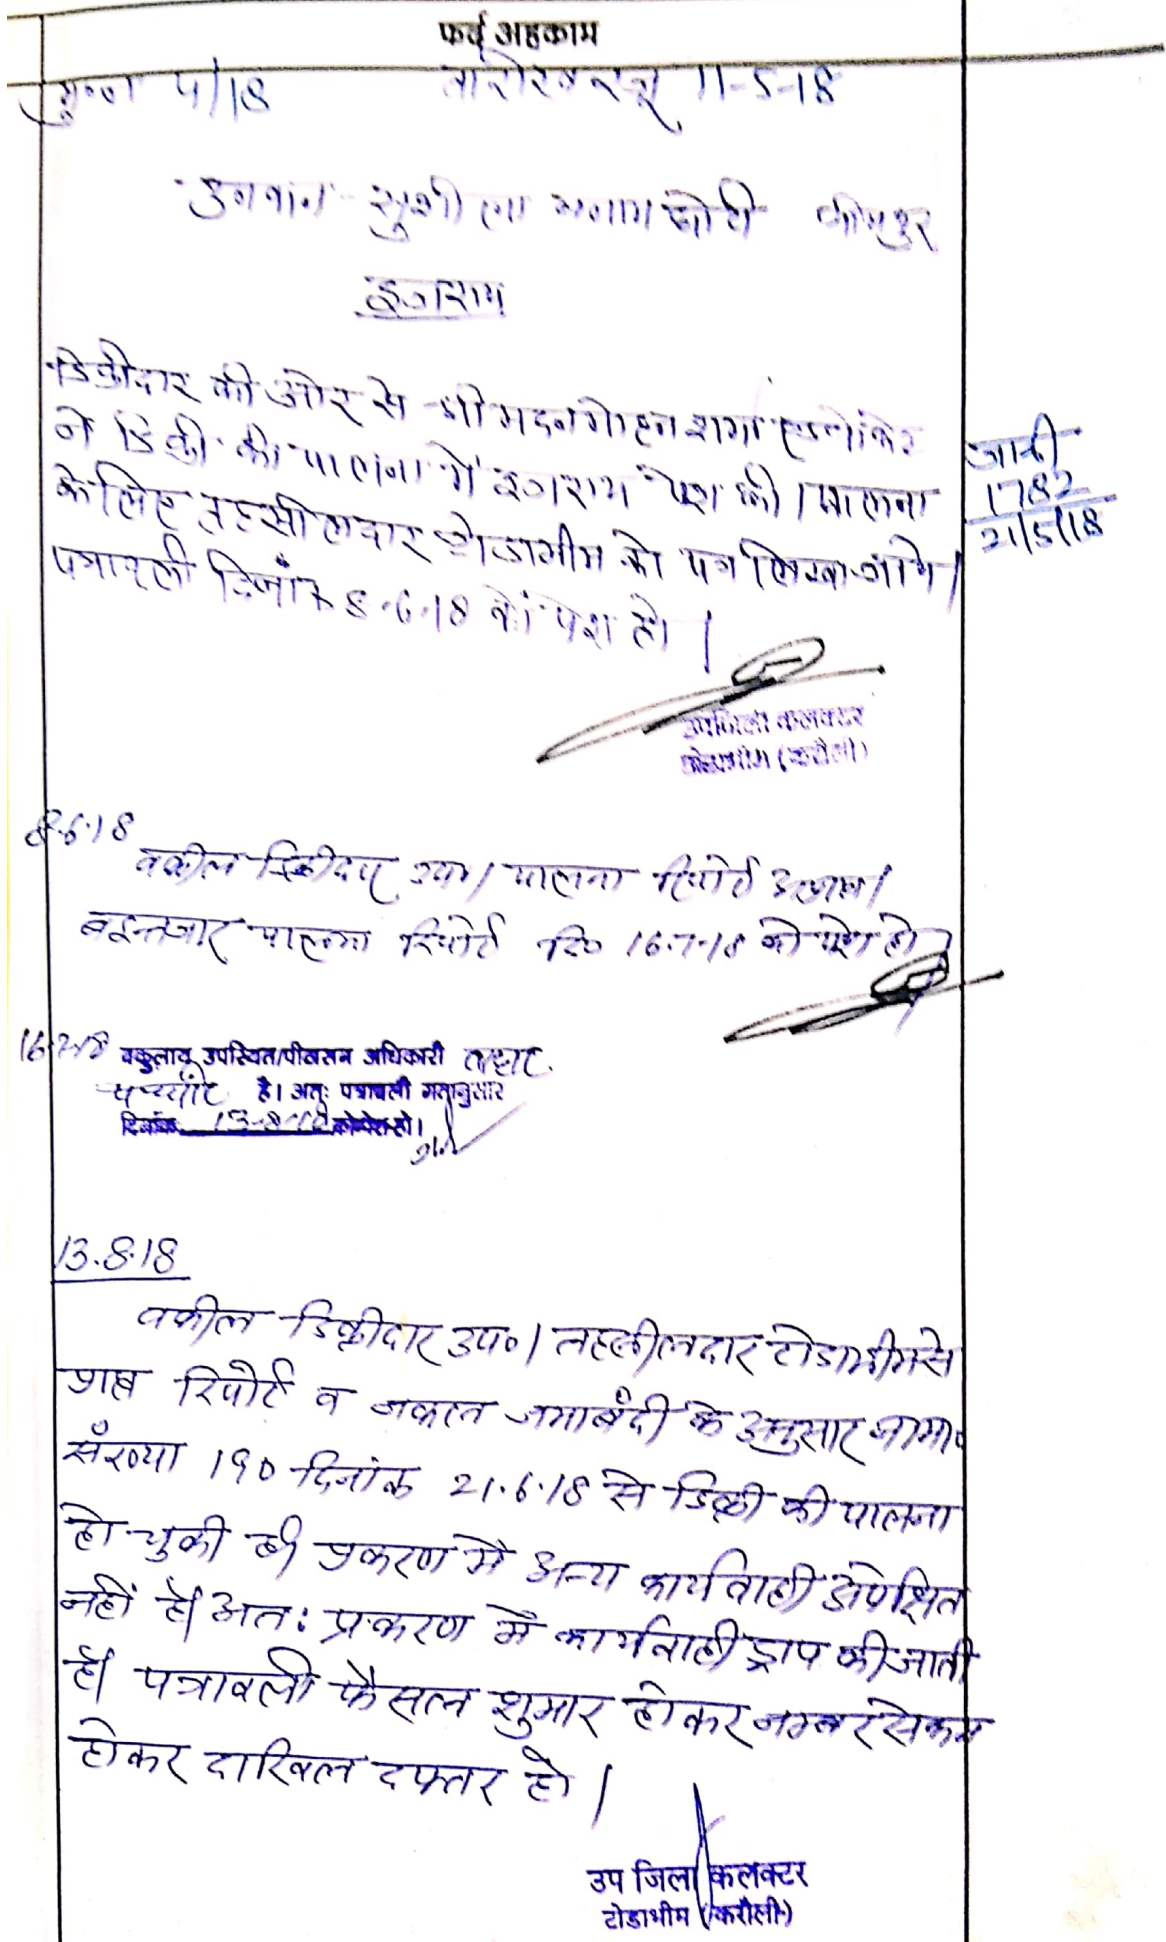 फर्द अहकाम
मु०न० 4/18 तारीख रजू 11-5-18
उनवान सुशीला बनाम छोटी
इजराय
डिक्रीदार की ओर से श्री मदनमोहन शर्मा एडवोकेट
ने डिक्री की पालना में इजराय पेश की। पालना
के लिए तहसीलदार टोडाभीम को पत्र लिखा जावे।
पत्रावली दिनांक 8.6.18 को पेश हो।
जारी
1782
21/5/18
उपजिला कलक्टर
टोडाभीम (करौली)
8.6.18
वकील डिक्रीदार उप०। पालना रिपोर्ट अप्राप्त।
बइन्तजार पालना रिपोर्ट दि० 16.7.18 को पेश हो
16.7.18 वकुलाय उपस्थित/पीठासन अधिकारी
है। अतः पत्रावली गतानुसार
दिनांक 13-8-18 को पेश हो।
13.8.18
वकील डिक्रीदार उप०। तहसीलदार टोडाभीम से
प्राप्त रिपोर्ट व नकल जमाबंदी के अनुसार नामा०
संख्या 190 दिनांक 21.6.18 से डिक्री की पालना
हो चुकी है। प्रकरण में अन्य कार्यवाही अपेक्षित
नहीं है। अतः प्रकरण में कार्यवाही ड्राप की जाती
है। पत्रावली फैसल शुमार होकर नम्बर से कम
होकर दाखिल दफ्तर हो।
उप जिला कलक्टर
टोडाभीम (करौली)